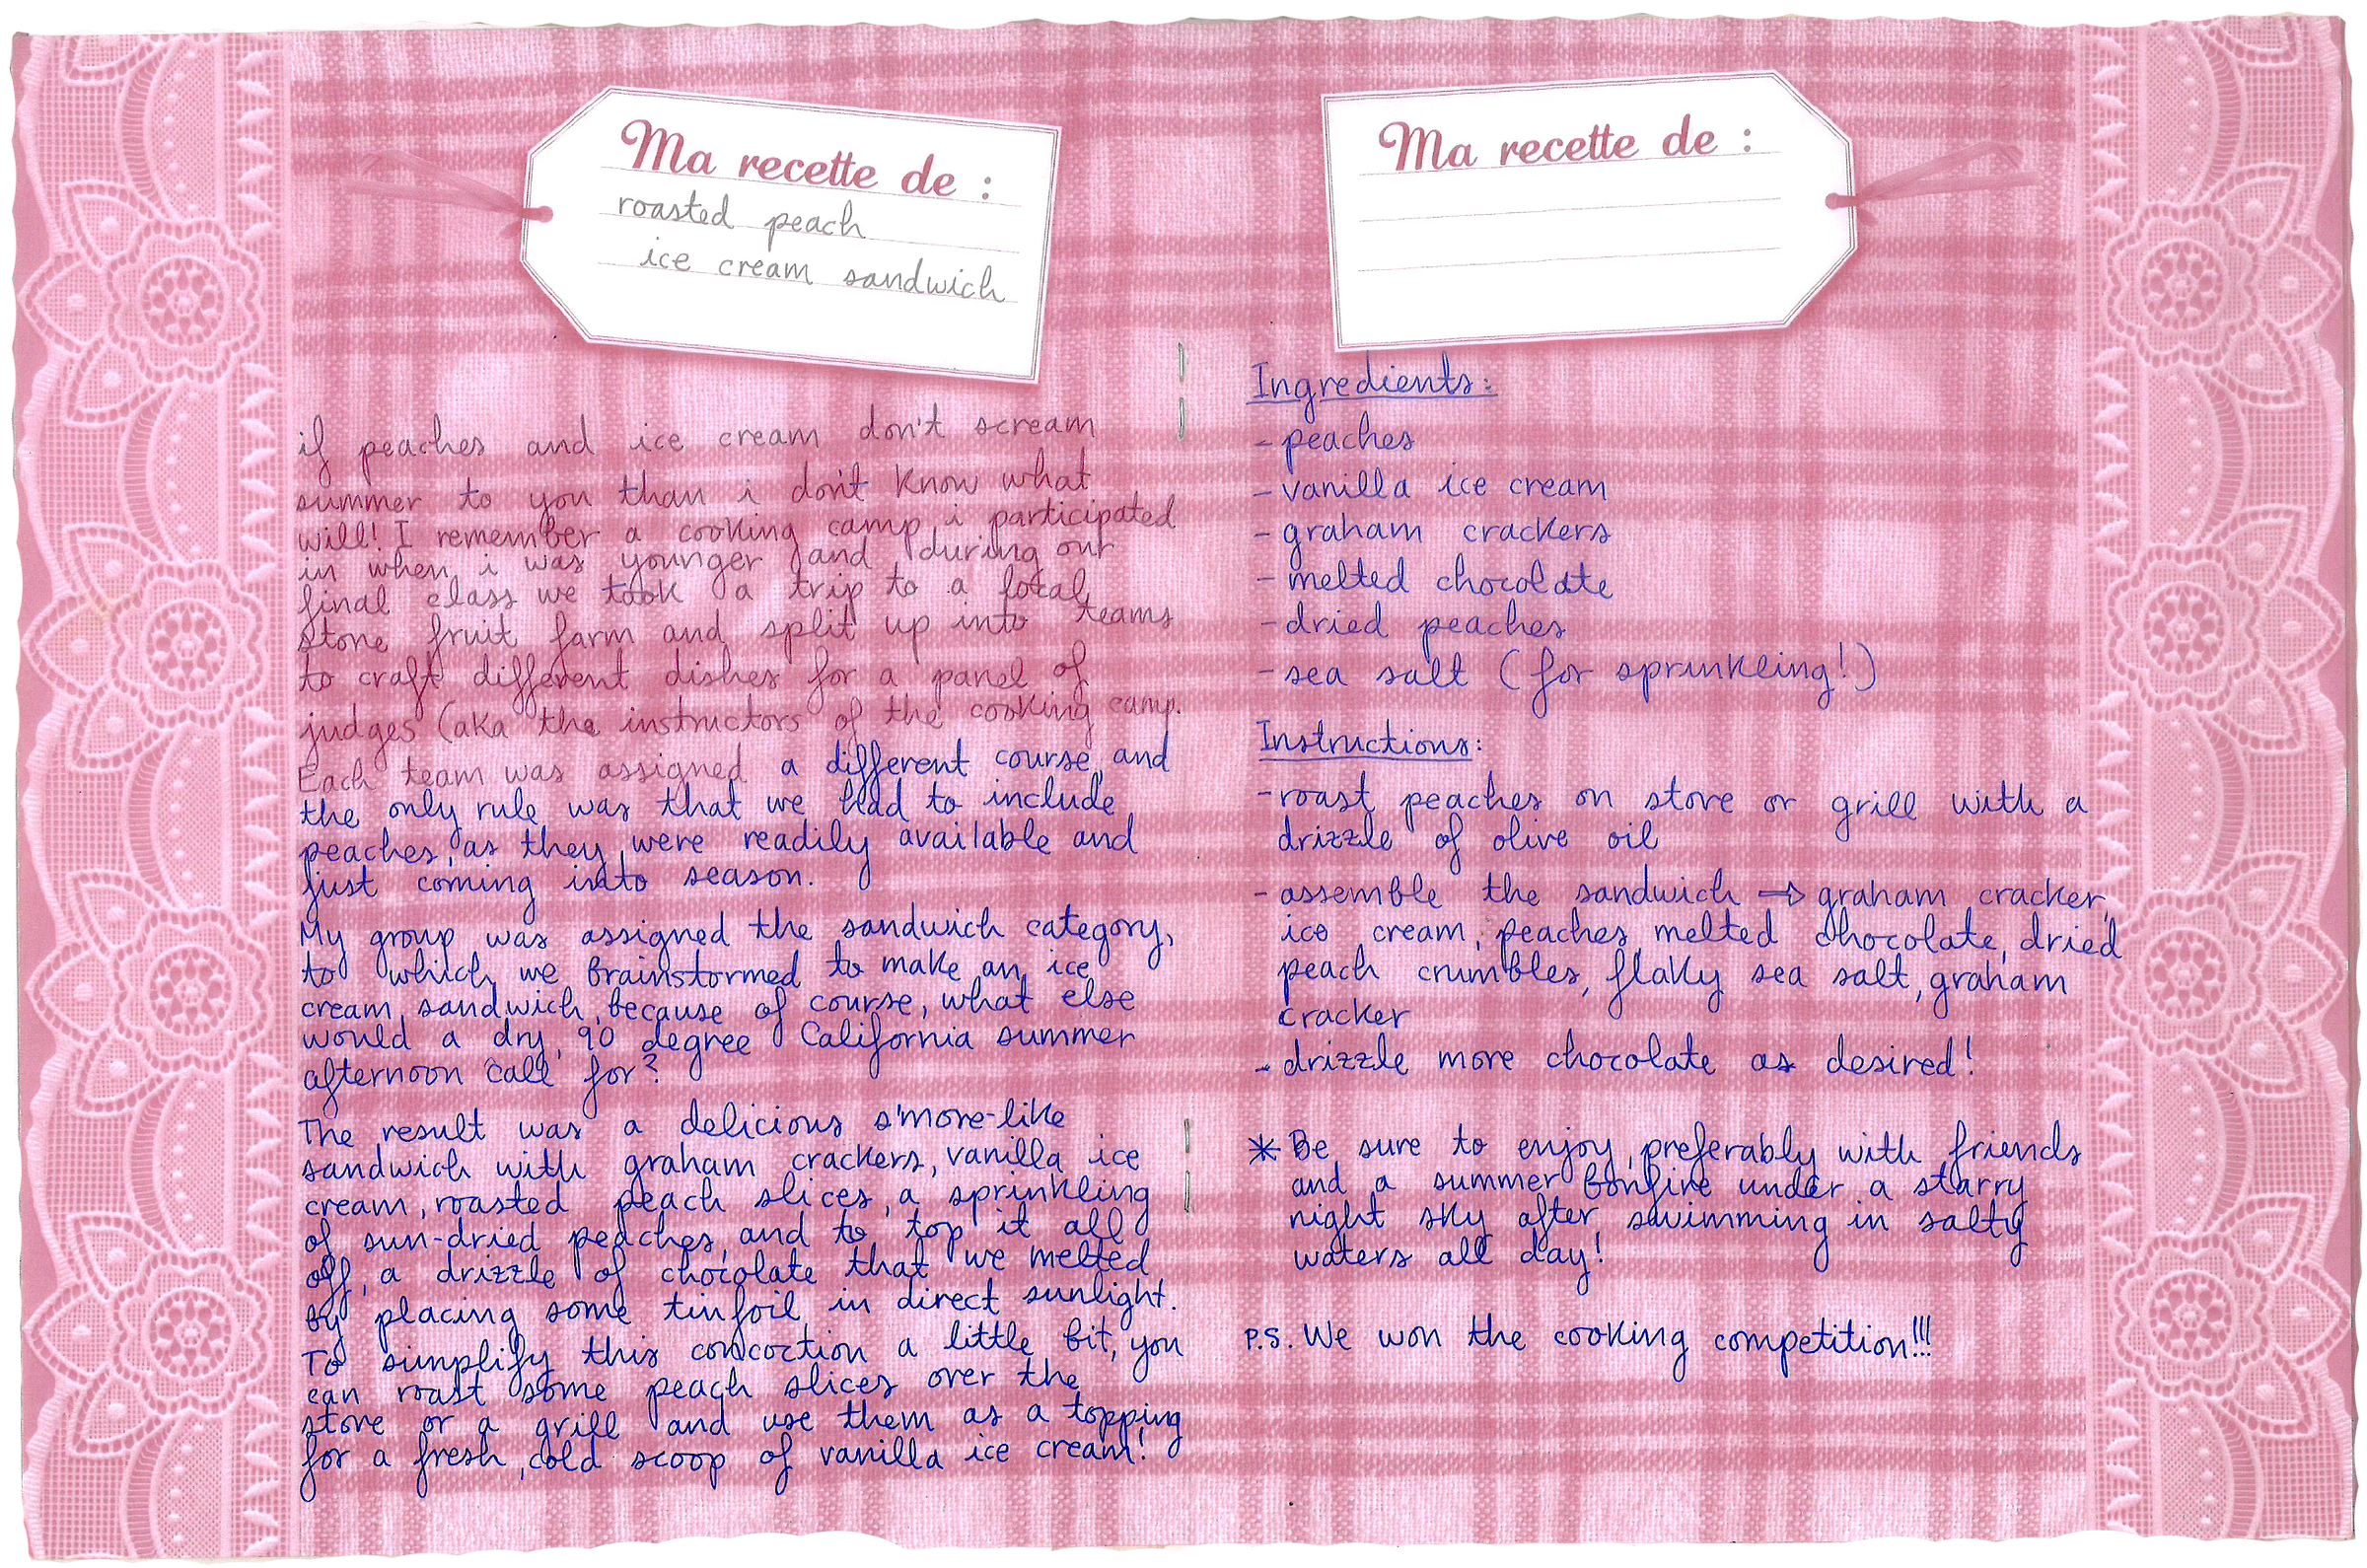 Ma recette de :
roasted peach
ice cream sandwich
if peaches and ice cream don't scream
summer to you than i don't know what
will! I remember a cooking camp i participated
in when i was younger and during our
final class we took a trip to a local
stone fruit farm and split up into teams
to craft different dishes for a panel of
judges (aka the instructors of the cooking camp.
Each team was assigned a different course, and
the only rule was that we had to include
peaches, as they were readily available and
just coming into season.
My group was assigned the sandwich category,
to which we brainstormed to make an ice
cream sandwich, because of course, what else
would a dry, 90 degree California summer
afternoon call for?
The result was a delicious s'more-like
sandwich with graham crackers, vanilla ice
cream, roasted peach slices, a sprinkling
of sun-dried peaches, and to top it all
off, a drizzle of chocolate that we melted
by placing some tinfoil in direct sunlight.
To simplify this concoction a little bit, you
can roast some peach slices over the
stove or a grill and use them as a topping
for a fresh, cold scoop of vanilla ice cream!
Ma recette de :
Ingredients:
- peaches
- vanilla ice cream
- graham crackers
- melted chocolate
- dried peaches
- sea salt (for sprinkling!)
Instructions:
- roast peaches on stove or grill with a
drizzle of olive oil
- assemble the sandwich ⇒ graham cracker,
ice cream, peaches, melted chocolate, dried
peach crumbles, flaky sea salt, graham
cracker
- drizzle more chocolate as desired!
* Be sure to enjoy, preferably with friends
and a summer bonfire under a starry
night sky after swimming in salty
waters all day!
P.S. We won the cooking competition!!!